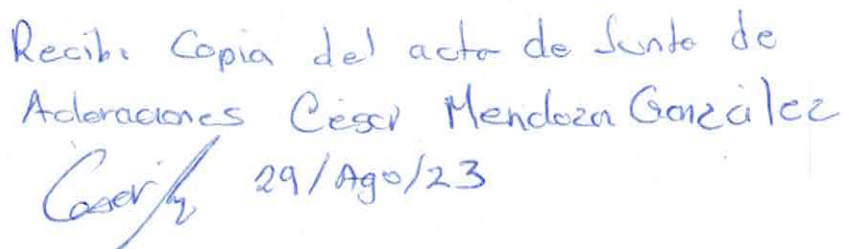 Recibi Copia del acta de Junta de
Aclaraciones César Mendoza González
29/Ago/23